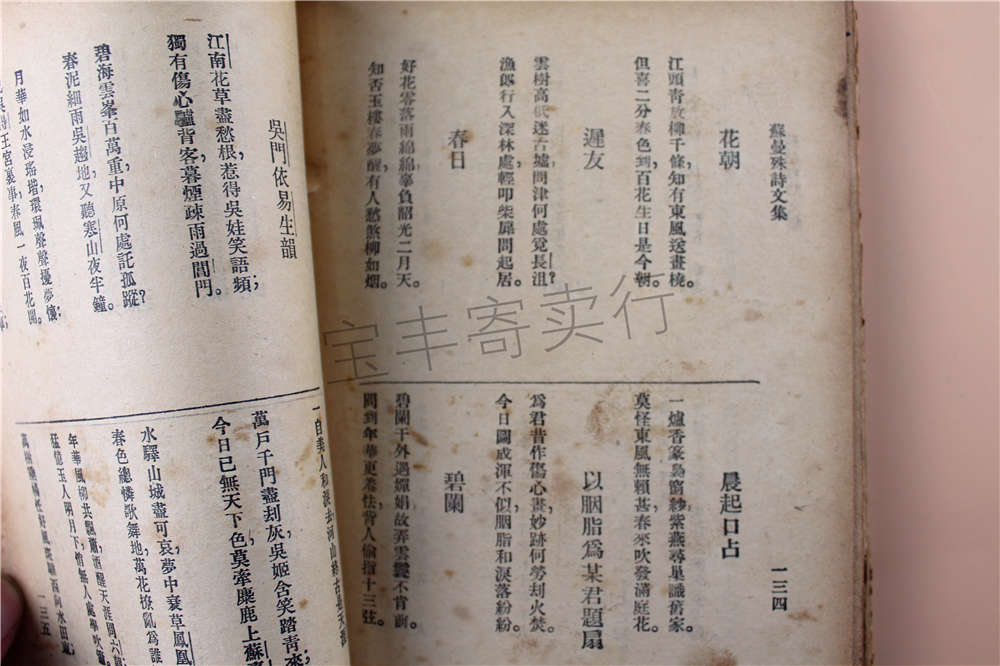 蘇曼殊詩文集
花朝
江頭青放柳千條，知有東風送畫橈，
但喜二分春色到，百花生日是今朝。
遲友
雲樹高低迷古墟，問津何處覓長沮？
漁郎行入深林處，輕叩柴扉問起居。
春日
好花零落雨綿綿，辜負韶光二月天。
知否玉樓春夢醒，有人愁煞柳如烟。
晨起口占
一爐香篆裊窗紗，紫燕尋巢識舊家，
莫怪東風無賴甚，春來吹發滿庭花。
以胭脂爲某君題扇
爲君昔作傷心畫，妙跡何勞刧火焚，
今日圖成渾不似，胭脂和淚落紛紛。
碧闌
碧闌干外遇嬋娟，故弄雲鬟不肯前，
問到年華更羞怯，背人偷指十三弦。
一三四
江南花草盡愁根，惹得吳娃笑語頻；
獨有傷心驢背客，暮煙疎雨過閶門。
吳門依易生韻
碧海雲峯百萬重，中原何處託孤蹤？
春泥細雨吳趨地，又聽寒山夜半鐘。
月華如水浸瑤堦，環珮聲聲擾夢懷；
王宮裏事，春風一夜百花開。
萬戶千門盡刧灰，吳姬含笑踏青來
今日已無天下色，莫牽麋鹿上蘇
水驛山城盡可哀，夢中衰草鳳凰
春色總憐歌舞地，萬花撩亂爲誰
年華風柳共飄蕭，酒醒天涯問六
猛憶玉人明月下，悄無人處學吹
一三五
宝丰寄卖行